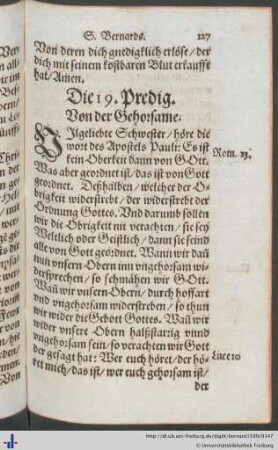 S. Bernards. 127
Von deren dich gnediglich erlöse / der
dich mit seinem kostbaren Blut erkaufft
hat / Amen.
Die 19. Predig.
Von der Gehorsame.
Vilgeliebte Schwester / höre die
wort des Apostels Pauli: Es ist
kein Oberkeit dann von GOtt.
Rom. 13.
Was aber geordnet ist / das ist von Gott
geordnet. Deßhalben / welcher der O-
brigkeit widerstrebt / der widerstrebt der
Ordnung Gottes. Vnd darumb sollen
wir die Obrigkeit nit verachten / sie sey
Weltlich oder Geistlich / dann sie seind
alle von Gott geordnet. Wann wir dañ
inn vnsern Obern inn vngehorsam wi-
dersprechen / so schmähen wir GOtt.
Wañ wir vnsern Obern / durch hoffart
vnd vngehorsam widerstreben / so thun
wir wider die Gebott Gottes. Wañ wir
wider vnsere Obern halßstarrig vnnd
vngehorsam sein / so verachten wir Gott
der gesagt hat: Wer euch höret / der hö-
Luce 10
ret mich / das ist / wer euch gehorsam ist /
der
http://dl.ub.uni-freiburg.de/diglit/bernard1599/0347
© Universitätsbibliothek Freiburg